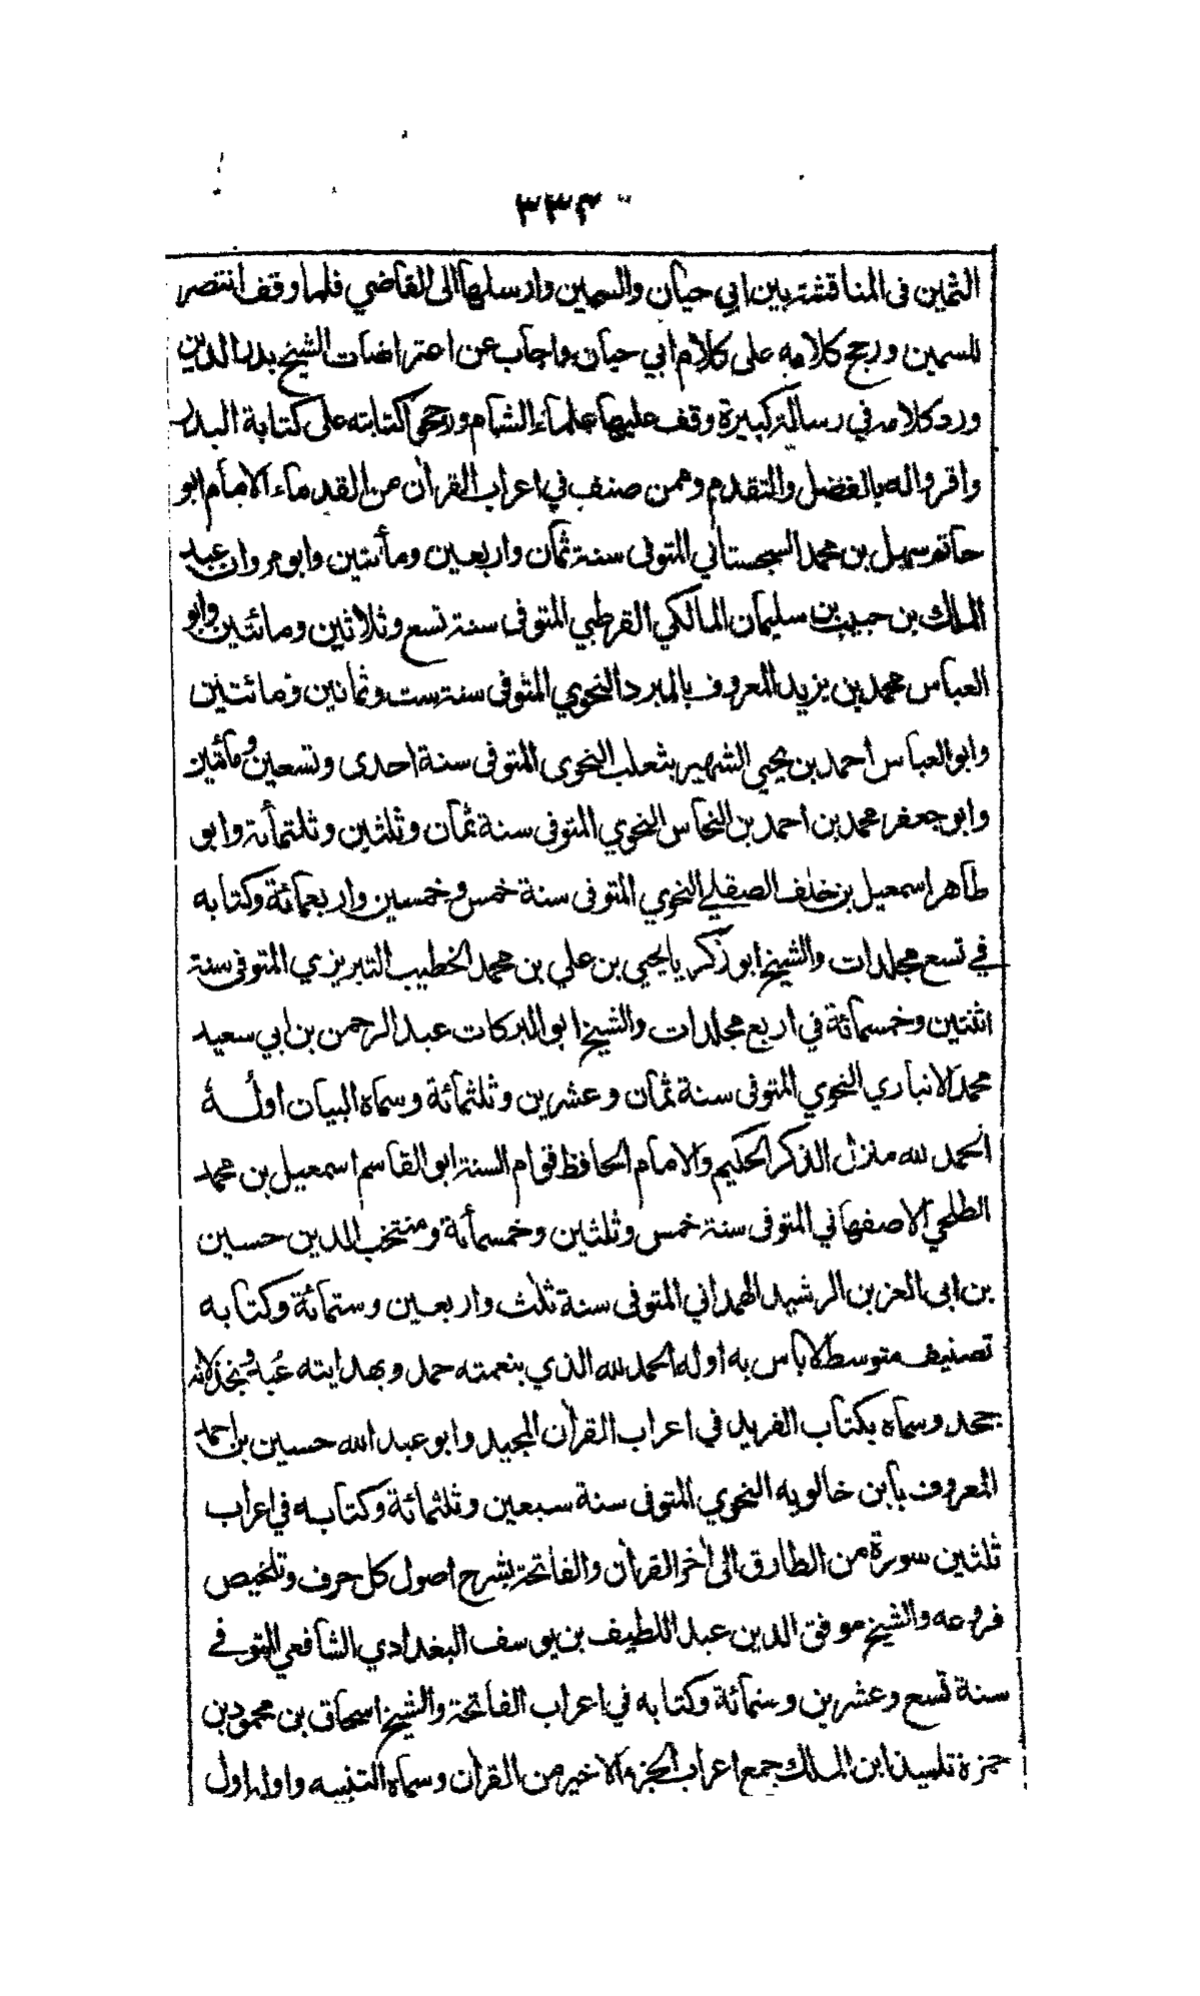 ٣٣٤
الثمين فى المناقشة بين ابي حيان والسمين وارسلها الى القاضي فلما وقف انتصر
للسمين ورجح كلامه على كلام ابي حيان واجاب عن اعتراضات الشيخ بدر الدين
ورد كلامه في رسالة كبيرة وقف عليها علماء الشام ورجحوا كتابته على كتابة البدر
واقروا له بالفضل والتقدم وممن صنف في اعراب القرآن من القدماء الامام ابو
حاتم سهيل بن محمد السجستاني المتوفى سنة ثمان واربعين ومأتين وابو مروان عبد
الملك بن حبيب بن سليمان المالكي القرطبي المتوفى سنة تسع وثلاثين ومائتين وابو
العباس محمد بن يزيد المعروف بالمبرد النحوي المتوفى سنة ست وثمانين ومائتين
وابو العباس أحمد بن يحيي الشهير بثعلب النحوى المتوفى سنة احدى وتسعين ومأتين
وابو جعفر محمد بن احمد بن النحاس النحوي المتوفى سنة ثمان وثلثين وثلثمأة وابو
طاهر اسمعيل بن خلف الصقلے النحوي المتوفى سنة خمس وخمسين واربعمائة وكتابه
في تسع مجلدات والشيخ ابو زكريا يحيي بن علي بن محمد الخطيب التبريزي المتوفى سنة
اثنتين وخمسمائة في اربع مجلدات والشيخ ابو البركات عبد الرحمن بن ابي سعيد
محمد الانباري النحوي المتوفى سنة ثمان وعشرين وثلثمائة وسماه البيان اوله
الحمد لله منزل الذكر الحكيم والامام الحافظ قوام السنة ابو القاسم اسمعيل بن محمد
الطلحي الاصفهاني المتوفى سنة خمس وثلثين وخمسمأة ومنتخب الدين حسين
بن ابى العز بن الرشيد الهمداني المتوفى سنة ثلث واربعين وستمائة وكتابه
تصنيف متوسط لا باس به اوله الحمد لله الذي بنعمته حمد وبهدايته عُبد وبخذلانه
جحد وسماه بكتاب الفريد في اعراب القرآن المجيد وابو عبد الله حسين بن احمد
المعروف بابن خالويه النحوي المتوفى سنة سبعين وثلثمائة وكتابه في اعراب
ثلثين سورة من الطارق الى آخر القرآن والفاتحة بشرح اصول كل حرف وتلخيص
فروعه والشيخ موفق الدين عبد اللطيف بن يوسف البغدادي الشافعي المتوفے
سنة تسع وعشرين وستمائة وكتابه في اعراب الفاتحة والشيخ اسحاق بن محمود بن
حمزة تلميذ ابن الملك جمع اعراب الجزء الاخير من القرآن وسماه التنبيه واوله اول